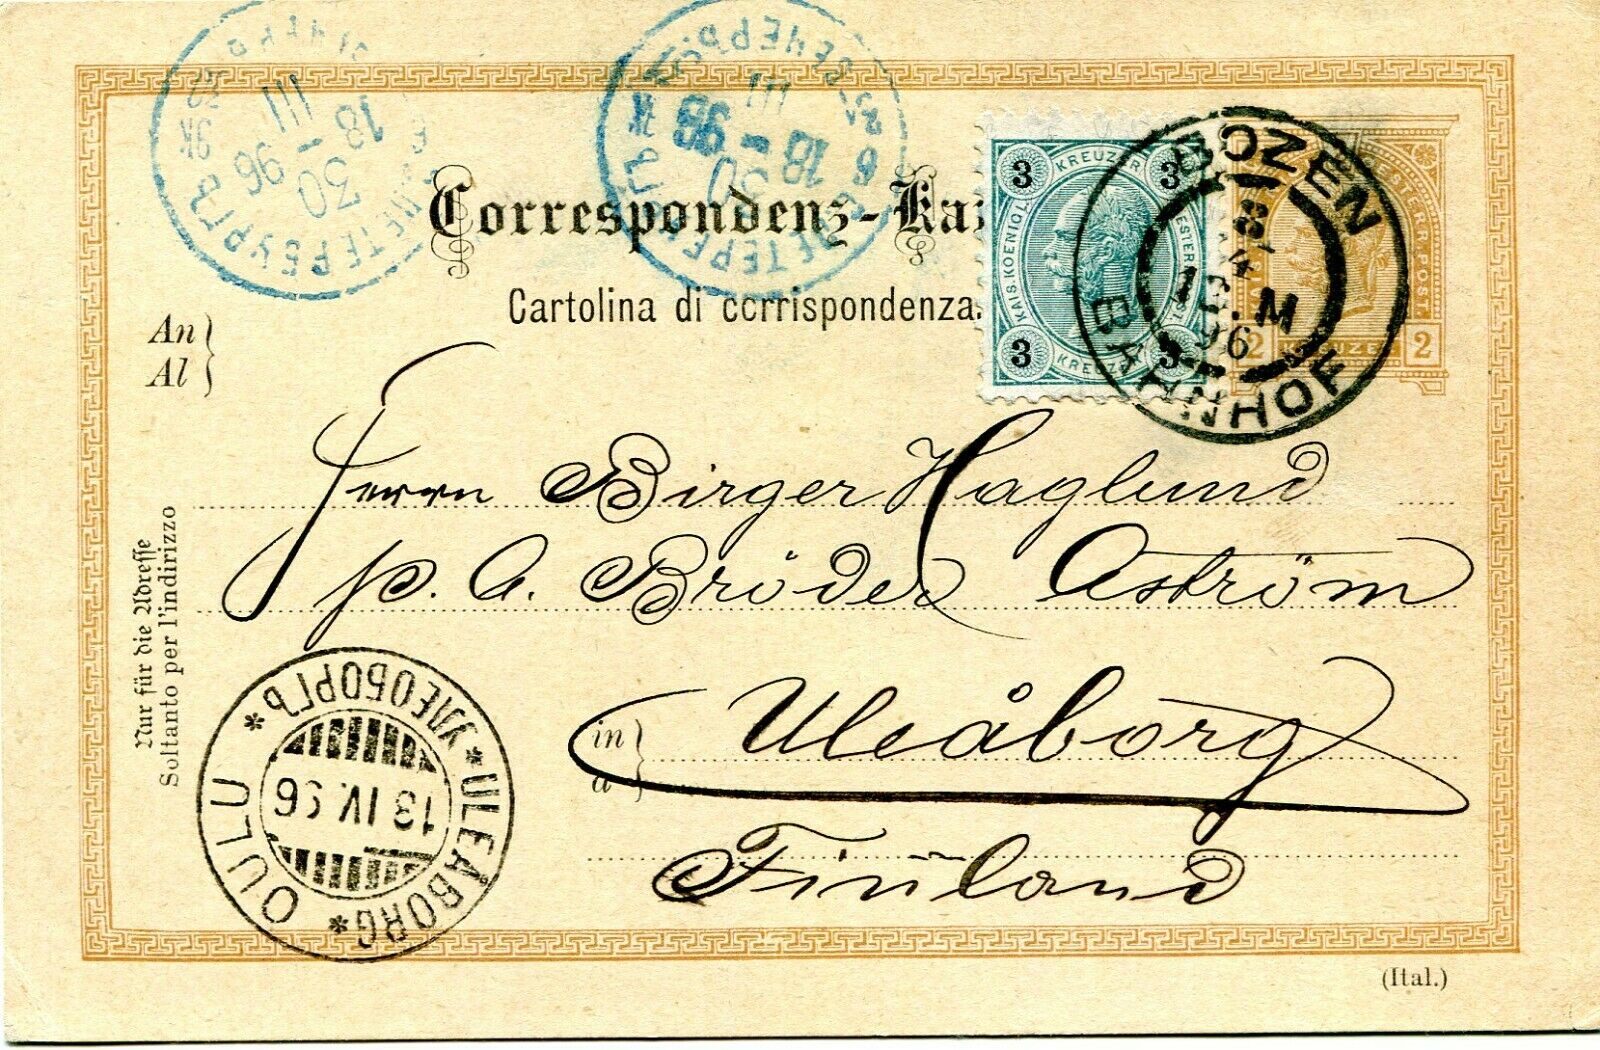 Correspondenz-Ka
Cartolina di corrispondenza.
An
Al
3 KREUZER 3
KAIS. KOENIGL. OESTERR.
3 KREUZER 3
OESTERR. POST.
2 KREUZER 2
BOZEN
8/4
96
BAHNHOF
С. ПЕТЕРБУРГЪ
30
III
18 96
С. ПЕТЕРБУРГЪ
30
III
18 96
Herrn Birger Haglund
p. a. Bröder Aström
in
a
Uleåborg
Finland
Nur für die Adresse
Soltanto per l'indirizzo
OULU * УЛЕОБОРГЪ * ULEÅBORG *
13 IV. 96
(Ital.)